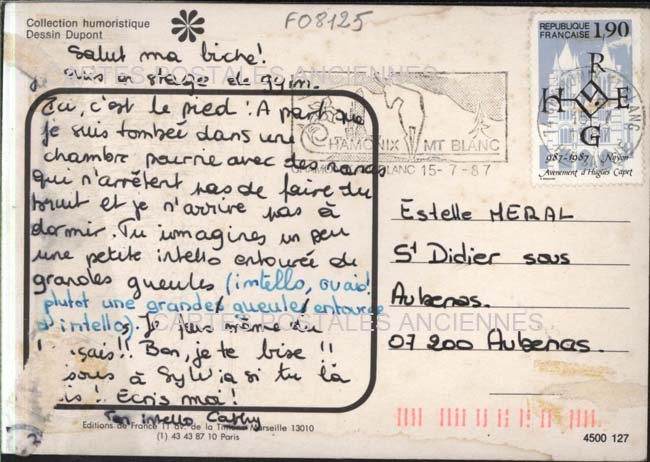 Collection humoristique
Dessin Dupont
F08125
Salut ma biche!
suis en stage de gym.
Ici, c'est le pied! A part que
je suis tombée dans une
chambre pourrie avec des nanas
qui n'arrêtent pas de faire du
bruit et je n'arrive pas à
dormir. Tu immagines un peu
une petite intello entourée de
grandes gueules (intello, ouais
plutot une grande gueule entourée
d'intellos). Je
sais!! Bon, je te bise!!
à Sylvia si tu la
Ecris moi!
Ton intello Cathy
CARTES POSTALES ANCIENNES
CARTES POSTALES ANCIENNES
CHAMONIX MT BLANC
CHAMONIX MONT BLANC 15-7-87
REPUBLIQUE
FRANÇAISE 1,90
R
H E
G
987-1987 Noyon
Avènement d'Hugues Capet
Estelle MERAL
St Didier sous
Aubenas.
07 200 Aubenas.
Editions de France 11 av. de la Marseille 13010
(1) 43 43 87 10 Paris
4500 127